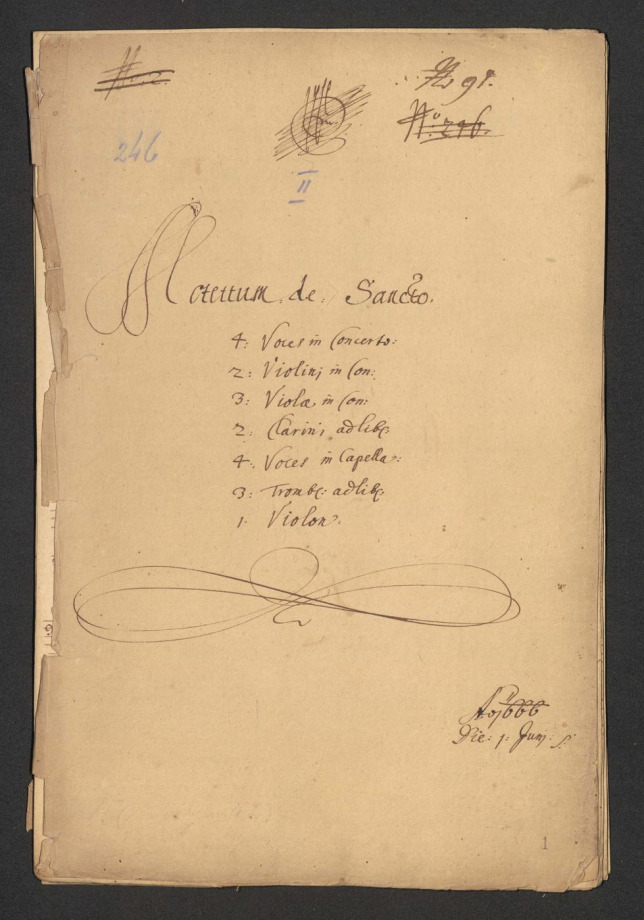 No 91.
No: 246.
246
II
Motettum. de. Sancto.
4: Voces in Concerto:
2: Violini in Con:
3: Violæ in Con:
2: Clarini ad lib:
4. Voces in Capella:
3: Tromb: ad lib:
1. Violon.
Ao 1666
Die: 1: Junj.
1